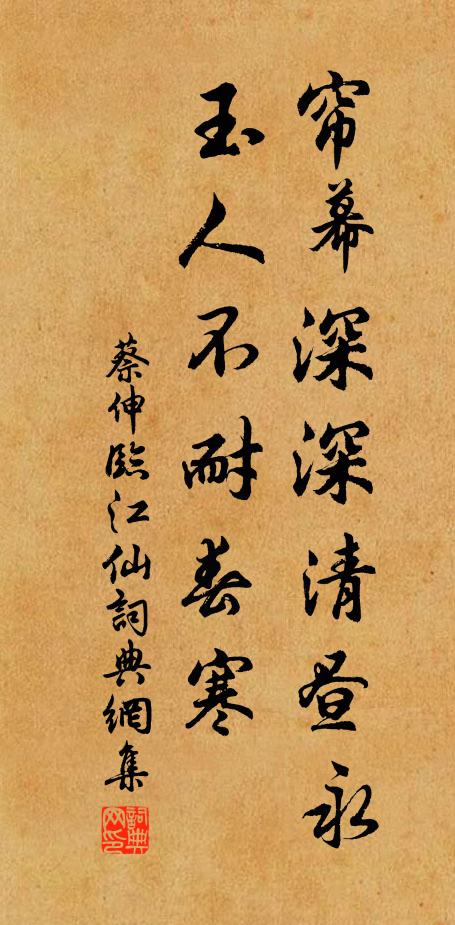 帘幕深深清昼永
玉人不耐春寒
蔡伸臨江仙詞典網集
詞典网印